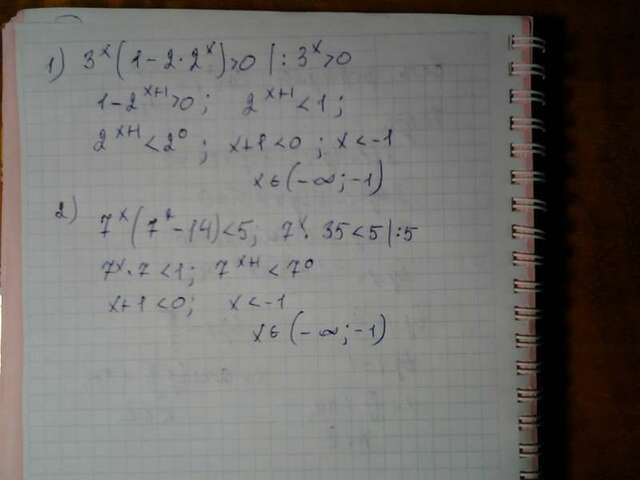 1) 3ˣ(1-2·2ˣ)>0 |:3ˣ>0
1-2ˣ⁺¹>0; 2ˣ⁺¹<1;
2ˣ⁺¹<2⁰; x+1<0; x<-1
x∈(-∞;-1)
2) 7ˣ(7²-14)<5; 7ˣ·35<5|:5
7ˣ·7<1; 7ˣ⁺¹<7⁰
x+1<0; x<-1
x∈(-∞;-1)